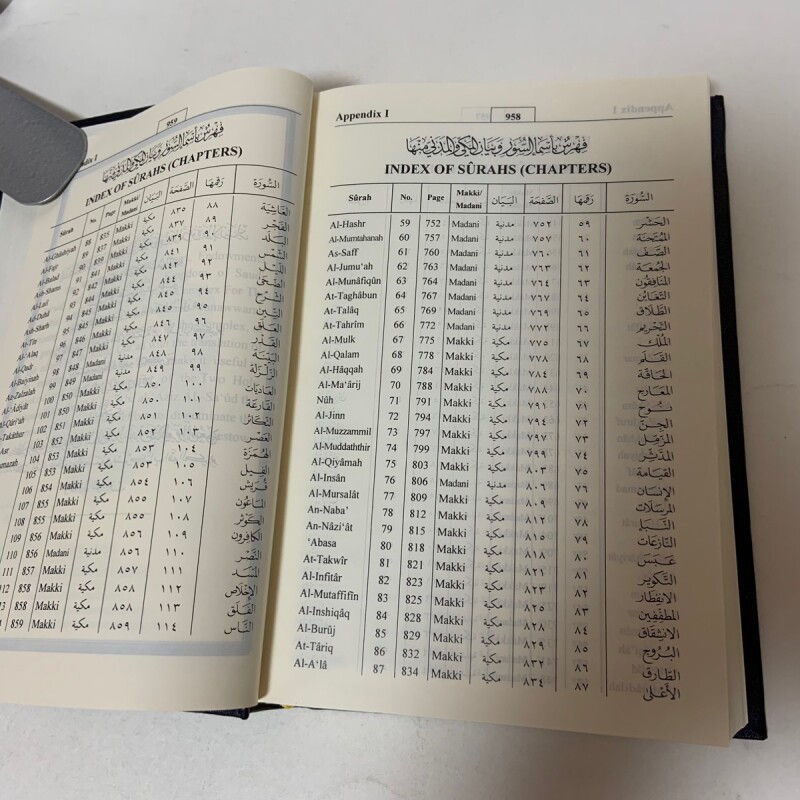 Appendix I 958
فهرس بأسماء السور وبيان المكي والمدني منها
INDEX OF SÛRAHS (CHAPTERS)
Sûrah No. Page Makki/ Madani البيان الصفحة رقمها السورة
Al-Hashr 59 752 Madani مدنية ٧٥٢ ٥٩ الحشر
Al-Mumtahanah 60 757 Madani مدنية ٧٥٧ ٦٠ الممتحنة
As-Saff 61 760 Madani مدنية ٧٦٠ ٦١ الصف
Al-Jumu'ah 62 763 Madani مدنية ٧٦٣ ٦٢ الجمعة
Al-Munâfiqûn 63 764 Madani مدنية ٧٦٤ ٦٣ المنافقون
At-Taghâbun 64 767 Madani مدنية ٧٦٧ ٦٤ التغابن
At-Talâq 65 769 Madani مدنية ٧٦٩ ٦٥ الطلاق
At-Tahrîm 66 772 Madani مدنية ٧٧٢ ٦٦ التحريم
Al-Mulk 67 775 Makki مكية ٧٧٥ ٦٧ الملك
Al-Qalam 68 778 Makki مكية ٧٧٨ ٦٨ القلم
Al-Hâqqah 69 784 Makki مكية ٧٨٤ ٦٩ الحاقة
Al-Ma'ârij 70 788 Makki مكية ٧٨٨ ٧٠ المعارج
Nûh 71 791 Makki مكية ٧٩١ ٧١ نوح
Al-Jinn 72 794 Makki مكية ٧٩٤ ٧٢ الجن
Al-Muzzammil 73 797 Makki مكية ٧٩٧ ٧٣ المزمل
Al-Muddaththir 74 799 Makki مكية ٧٩٩ ٧٤ المدثر
Al-Qiyâmah 75 803 Makki مكية ٨٠٣ ٧٥ القيامة
Al-Insân 76 806 Madani مدنية ٨٠٦ ٧٦ الإنسان
Al-Mursalât 77 809 Makki مكية ٨٠٩ ٧٧ المرسلات
An-Naba' 78 812 Makki مكية ٨١٢ ٧٨ النبأ
An-Nâzi'ât 79 815 Makki مكية ٨١٥ ٧٩ النازعات
'Abasa 80 818 Makki مكية ٨١٨ ٨٠ عبس
At-Takwîr 81 821 Makki مكية ٨٢١ ٨١ التكوير
Al-Infitâr 82 823 Makki مكية ٨٢٣ ٨٢ الانفطار
Al-Mutaffifîn 83 825 Makki مكية ٨٢٥ ٨٣ المطففين
Al-Inshiqâq 84 828 Makki مكية ٨٢٨ ٨٤ الانشقاق
Al-Burûj 85 829 Makki مكية ٨٢٩ ٨٥ البروج
At-Târiq 86 832 Makki مكية ٨٣٢ ٨٦ الطارق
Al-A'lâ 87 834 Makki مكية ٨٣٤ ٨٧ الأعلى
959
فهرس بأسماء السور وبيان المكي والمدني منها
INDEX OF SÛRAHS (CHAPTERS)
Sûrah No. Page Makki/ Madani البيان الصفحة رقمها السورة
Al-Ghâshiyah 88 835 Makki مكية ٨٣٥ ٨٨ الغاشية
Al-Fajr 89 837 Makki مكية ٨٣٧ ٨٩ الفجر
Al-Balad 90 839 Makki مكية ٨٣٩ ٩٠ البلد
Ash-Shams 91 841 Makki مكية ٨٤١ ٩١ الشمس
Al-Lail 92 842 Makki مكية ٨٤٢ ٩٢ الليل
Ad-Duhâ 93 844 Makki مكية ٨٤٤ ٩٣ الضحى
Ash-Sharh 94 845 Makki مكية ٨٤٥ ٩٤ الشرح
At-Tîn 95 845 Makki مكية ٨٤٥ ٩٥ التين
Al-'Alaq 96 846 Makki مكية ٨٤٦ ٩٦ العلق
Al-Qadr 97 847 Makki مكية ٨٤٧ ٩٧ القدر
Al-Baiyinah 98 848 Madani مدنية ٨٤٨ ٩٨ البينة
Az-Zalzalah 99 849 Madani مدنية ٨٤٩ ٩٩ الزلزلة
Al-'Âdiyât 100 850 Makki مكية ٨٥٠ ١٠٠ العاديات
Al-Qâri'ah 101 850 Makki مكية ٨٥٠ ١٠١ القارعة
At-Takâthur 102 851 Makki مكية ٨٥١ ١٠٢ التكاثر
103 852 Makki مكية ٨٥٢ ١٠٣ العصر
104 853 Makki مكية ٨٥٣ ١٠٤ الهمزة
105 853 Makki مكية ٨٥٣ ١٠٥ الفيل
106 854 Makki مكية ٨٥٤ ١٠٦ قريش
107 855 Makki مكية ٨٥٥ ١٠٧ الماعون
108 855 Makki مكية ٨٥٥ ١٠٨ الكوثر
109 856 Makki مكية ٨٥٦ ١٠٩ الكافرون
110 856 Madani مدنية ٨٥٦ ١١٠ النصر
111 857 Makki مكية ٨٥٧ ١١١ المسد
858 Makki مكية ٨٥٨ ١١٢ الإخلاص
858 Makki مكية ٨٥٨ ١١٣ الفلق
859 Makki مكية ٨٥٩ ١١٤ الناس